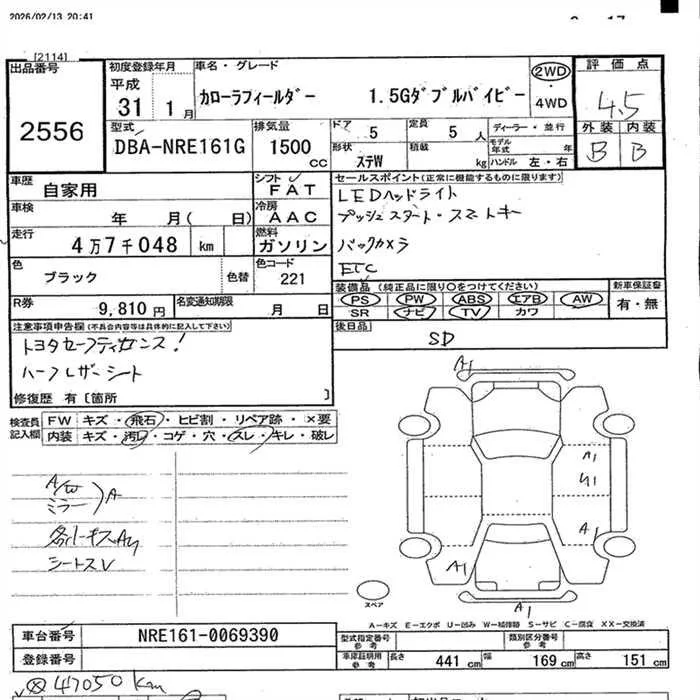 2026/02/13 20:41
[2114]
出品番号
2556
初度登録年月
平成
31 1月
車名・グレード
カローラフィールダー 1.5Gダブルバイビー
2WD
・
4WD
評価点
4.5
外装 内装
B B
型式
DBA-NRE161G
排気量
1500 cc
ドア 5
定員 5人
ディーラー・並行
形状 ステW
積載 kg
モデル年式 年
ハンドル 左・右
車歴 自家用
シフト FAT
車検 年 月( 日)
冷房 AAC
走行 4万7千048 km
燃料 ガソリン
色 ブラック 色替
色コード 221
R券 9,810円
名変通知期限 月 日
セールスポイント(正常に機能するものに限ります)
LEDヘッドライト
プッシュスタート・スマートキー
バックカメラ
ETC
装備品(純正品に限り○をつけてください)
PS PW ABS エアB AW
SR ナビ TV カワ
新車保証書
有・無
後日品
SD
注意事項申告欄(不具合内容等は具体的に記入して下さい)
トヨタセーフティセンス!
ハーフレザーシート
修復歴 有〔箇所 〕
検査員記入欄
FW キズ・飛石・ヒビ割・リペア跡・×要
内装 キズ・汚れ・コゲ・穴・スレ・キレ・破レ
A/W
ミラー A
シートスレ
A1
A1
A1
A1
A1
スペア
A-キズ E-エクボ U-凹み W-補修跡 S-サビ C-腐食 XX-交換済
車台番号 NRE161-0069390
登録番号
型式指定番号参考
類別区分番号参考
車庫証明用参考
長さ 441 cm
幅 169 cm
高さ 151 cm
47050 km